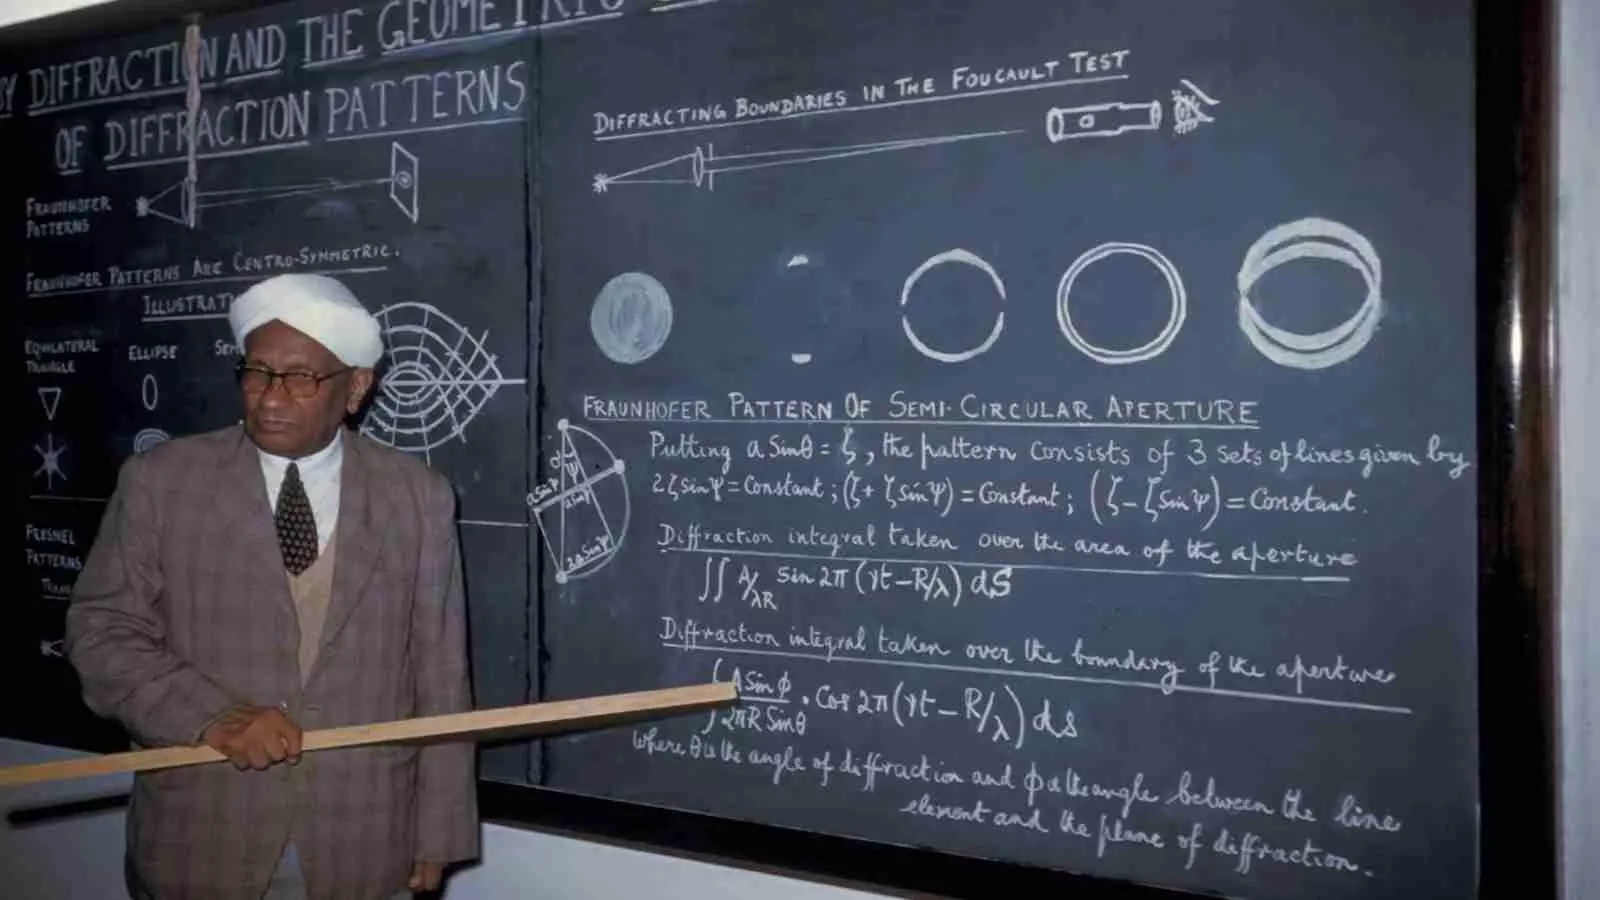 BY DIFFRACTION AND THE GEOMETRIC
OF DIFFRACTION PATTERNS
FRAUNHOFER
PATTERNS
FRAUNHOFER PATTERNS ARE CENTRO-SYMMETRIC.
EQUILATERAL
TRIANGLE
ELLIPSE
FRESNEL
PATTERNS
DIFFRACTING BOUNDARIES IN THE FOUCAULT TEST
FRAUNHOFER PATTERN OF SEMI-CIRCULAR APERTURE
Putting a Sinθ = ζ, the pattern consists of 3 sets of lines given by
2ζ sin Ψ = Constant ; (ζ + ζ sin Ψ) = Constant ; (ζ − ζ Sin Ψ) = Constant.
2a Sin Ψ
Diffraction integral taken over the area of the aperture
∫∫ A/λR Sin 2π (γt − R/λ) dS
Diffraction integral taken over the boundary of the aperture
∫ A Sin ϕ / 2πR Sin θ . Cos 2π (γt − R/λ) ds
where θ is the angle of diffraction and ϕ is the angle between the line
element and the plane of diffraction.